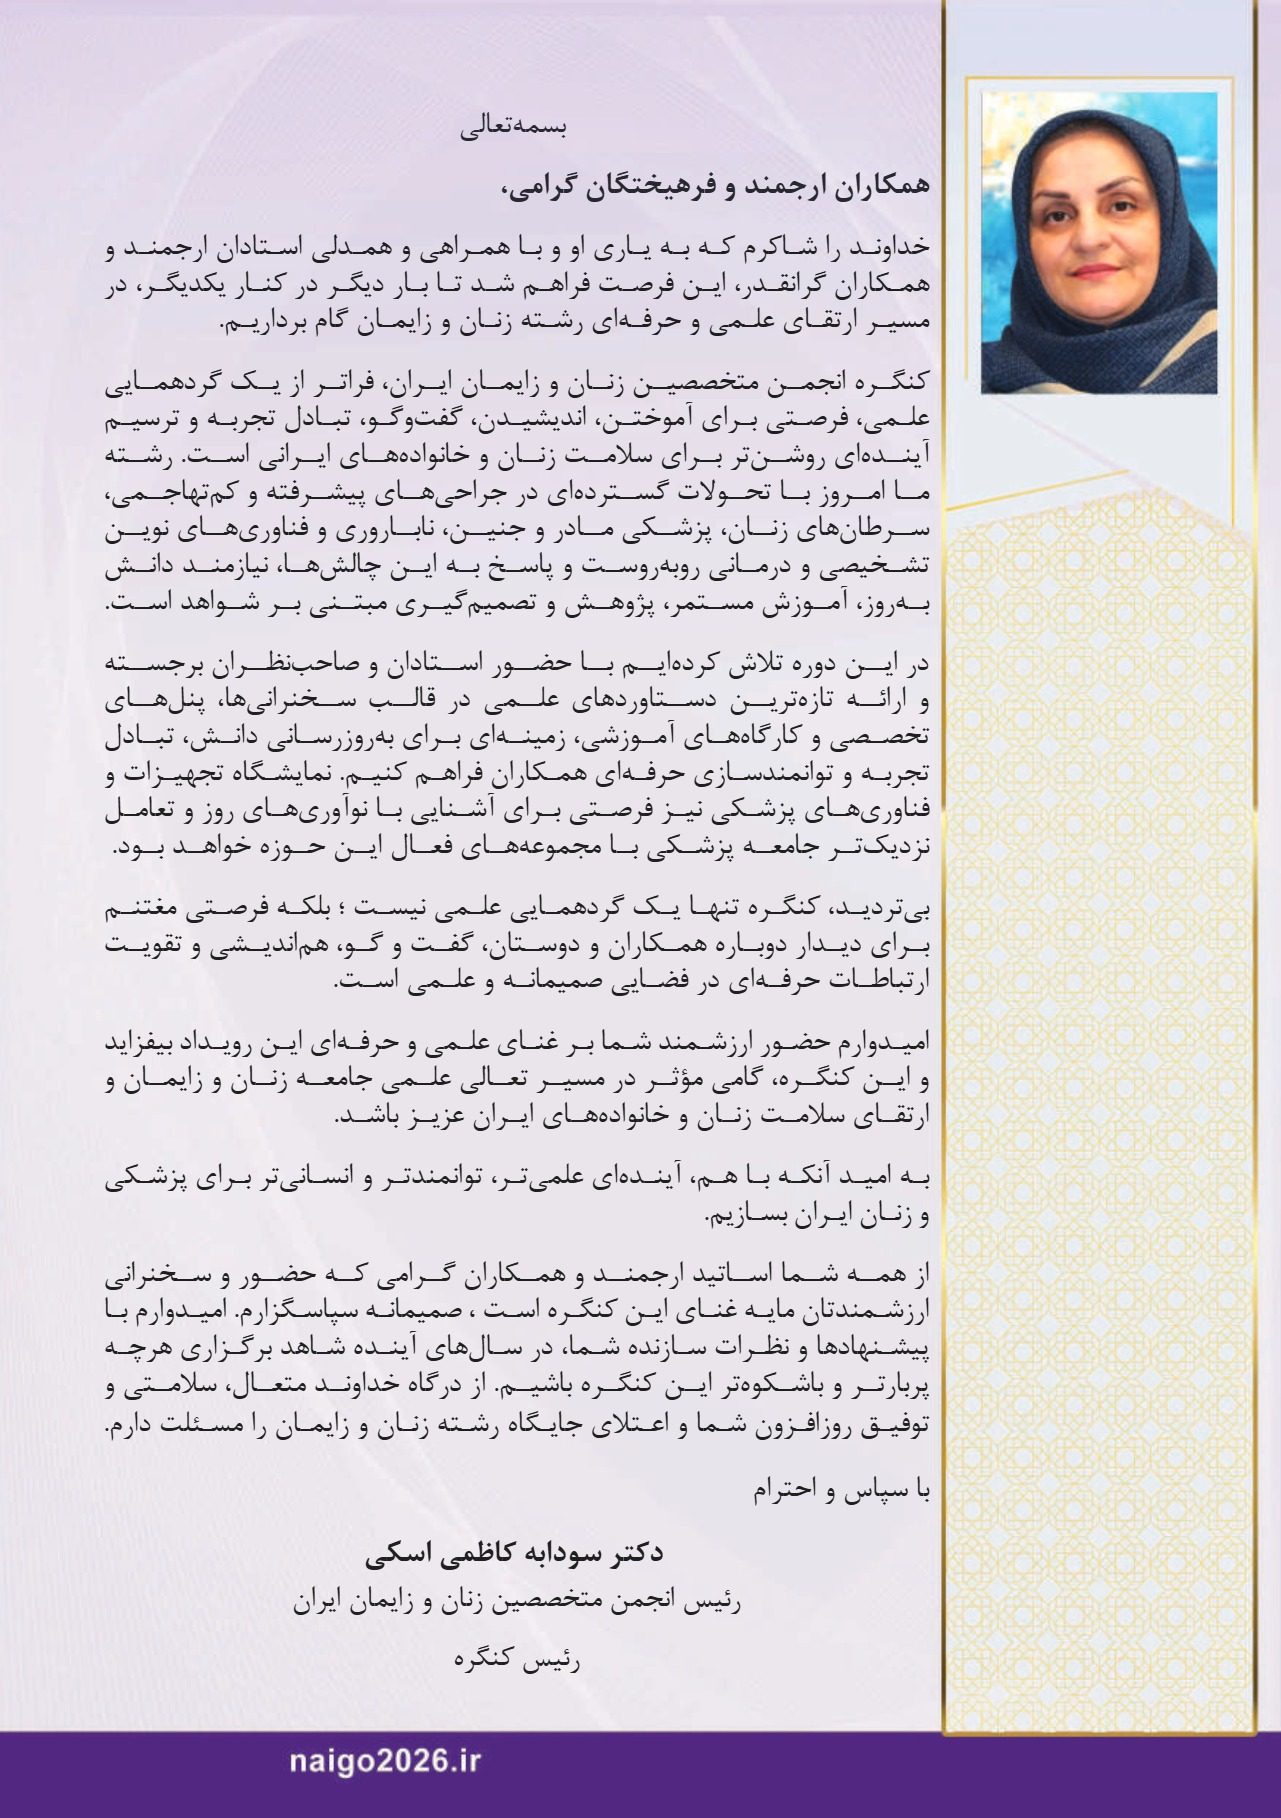 بسمه‌تعالی
همکاران ارجمند و فرهیختگان گرامی،
خداوند را شاکرم که به یاری او و با همراهی و همدلی استادان ارجمند و
همکاران گرانقدر، این فرصت فراهم شد تا بار دیگر در کنار یکدیگر، در
مسیر ارتقای علمی و حرفه‌ای رشته زنان و زایمان گام برداریم.
کنگره انجمن متخصصین زنان و زایمان ایران، فراتر از یک گردهمایی
علمی، فرصتی برای آموختن، اندیشیدن، گفت‌وگو، تبادل تجربه و ترسیم
آینده‌ای روشن‌تر برای سلامت زنان و خانواده‌های ایرانی است. رشته
ما امروز با تحولات گسترده‌ای در جراحی‌های پیشرفته و کم‌تهاجمی،
سرطان‌های زنان، پزشکی مادر و جنین، ناباروری و فناوری‌های نوین
تشخیصی و درمانی روبه‌روست و پاسخ به این چالش‌ها، نیازمند دانش
به‌روز، آموزش مستمر، پژوهش و تصمیم‌گیری مبتنی بر شواهد است.
در این دوره تلاش کرده‌ایم با حضور استادان و صاحب‌نظران برجسته
و ارائه تازه‌ترین دستاوردهای علمی در قالب سخنرانی‌ها، پنل‌های
تخصصی و کارگاه‌های آموزشی، زمینه‌ای برای به‌روزرسانی دانش، تبادل
تجربه و توانمندسازی حرفه‌ای همکاران فراهم کنیم. نمایشگاه تجهیزات و
فناوری‌های پزشکی نیز فرصتی برای آشنایی با نوآوری‌های روز و تعامل
نزدیک‌تر جامعه پزشکی با مجموعه‌های فعال این حوزه خواهد بود.
بی‌تردید، کنگره تنها یک گردهمایی علمی نیست ؛ بلکه فرصتی مغتنم
برای دیدار دوباره همکاران و دوستان، گفت و گو، هم‌اندیشی و تقویت
ارتباطات حرفه‌ای در فضایی صمیمانه و علمی است.
امیدوارم حضور ارزشمند شما بر غنای علمی و حرفه‌ای این رویداد بیفزاید
و این کنگره، گامی مؤثر در مسیر تعالی علمی جامعه زنان و زایمان و
ارتقای سلامت زنان و خانواده‌های ایران عزیز باشد.
به امید آنکه با هم، آینده‌ای علمی‌تر، توانمندتر و انسانی‌تر برای پزشکی
و زنان ایران بسازیم.
از همه شما اساتید ارجمند و همکاران گرامی که حضور و سخنرانی
ارزشمندتان مایه غنای این کنگره است ، صمیمانه سپاسگزارم. امیدوارم با
پیشنهادها و نظرات سازنده شما، در سال‌های آینده شاهد برگزاری هرچه
پربارتر و باشکوه‌تر این کنگره باشیم. از درگاه خداوند متعال، سلامتی و
توفیق روزافزون شما و اعتلای جایگاه رشته زنان و زایمان را مسئلت دارم.
با سپاس و احترام
دکتر سودابه کاظمی اسکی
رئیس انجمن متخصصین زنان و زایمان ایران
رئیس کنگره
naigo2026.ir